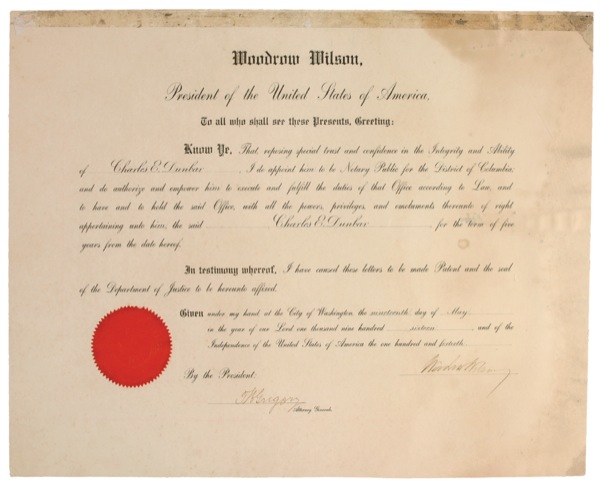 Woodrow Wilson,
President of the United States of America,
To all who shall see these Presents, Greeting:
Know Ye, That, reposing special trust and confidence in the Integrity and Ability
of Charles E. Dunbar, I do appoint him to be Notary Public for the District of Columbia;
and do authorize and empower him to execute and fulfill the duties of that Office according to Law, and
to have and to hold the said Office, with all the powers, privileges, and emoluments thereunto of right
appertaining unto him, the said Charles E. Dunbar, for the term of five
years from the date hereof.
In testimony whereof, I have caused these letters to be made Patent and the seal
of the Department of Justice to be hereunto affixed.
Given under my hand at the City of Washington, the nineteenth day of May,
in the year of our Lord one thousand nine hundred sixteen, and of the
Independence of the United States of America the one hundred and fortieth.
Woodrow Wilson
By the President:
T W Gregory
Attorney General.